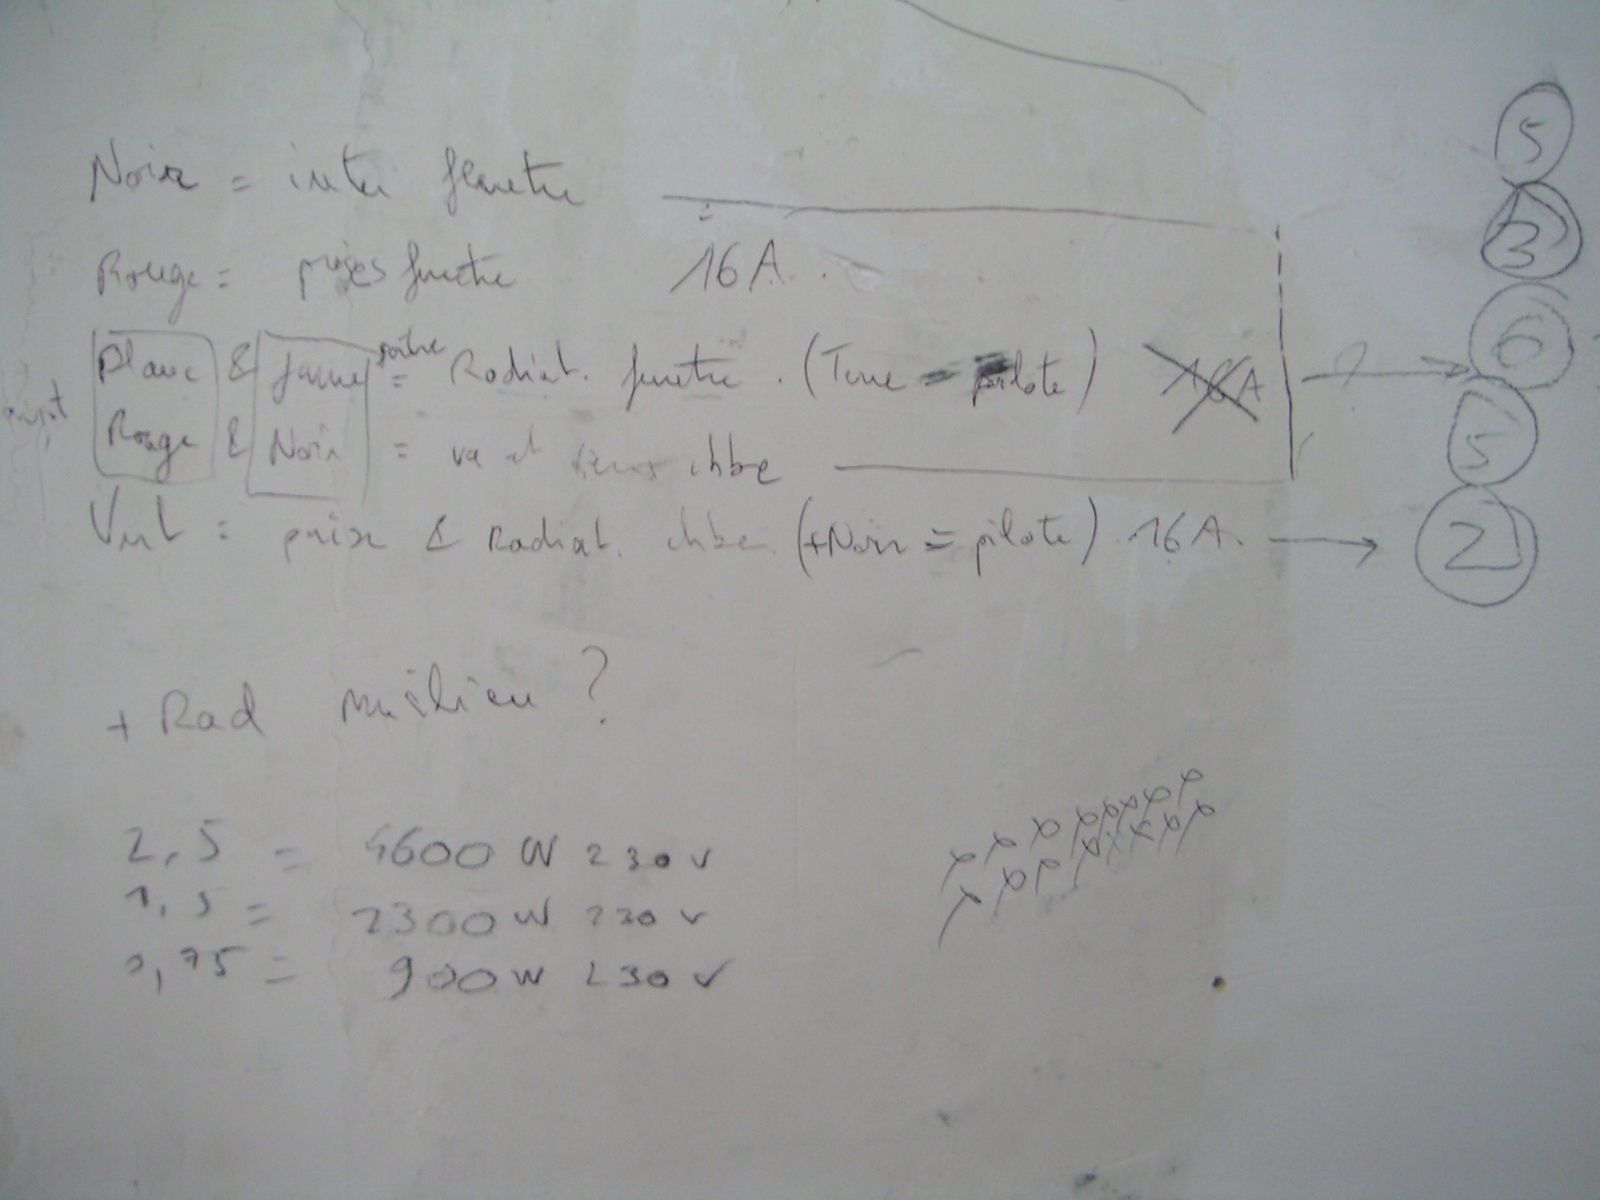 Noir = inter fenetre
Rouge = prises fenetre 16A
Blanc & Jaune = Radiat. fenetre . (Terre = pilote) 16A
Rouge & Noir = va et viens chbre
Vert = prise & Radiat. chbre (+Noir = pilote) 16A.
+ Rad milieu ?
2,5 = 4600 W 230 V
1,5 = 2300 W 230 V
0,75 = 900 W 230 V
5
3
6
5
2